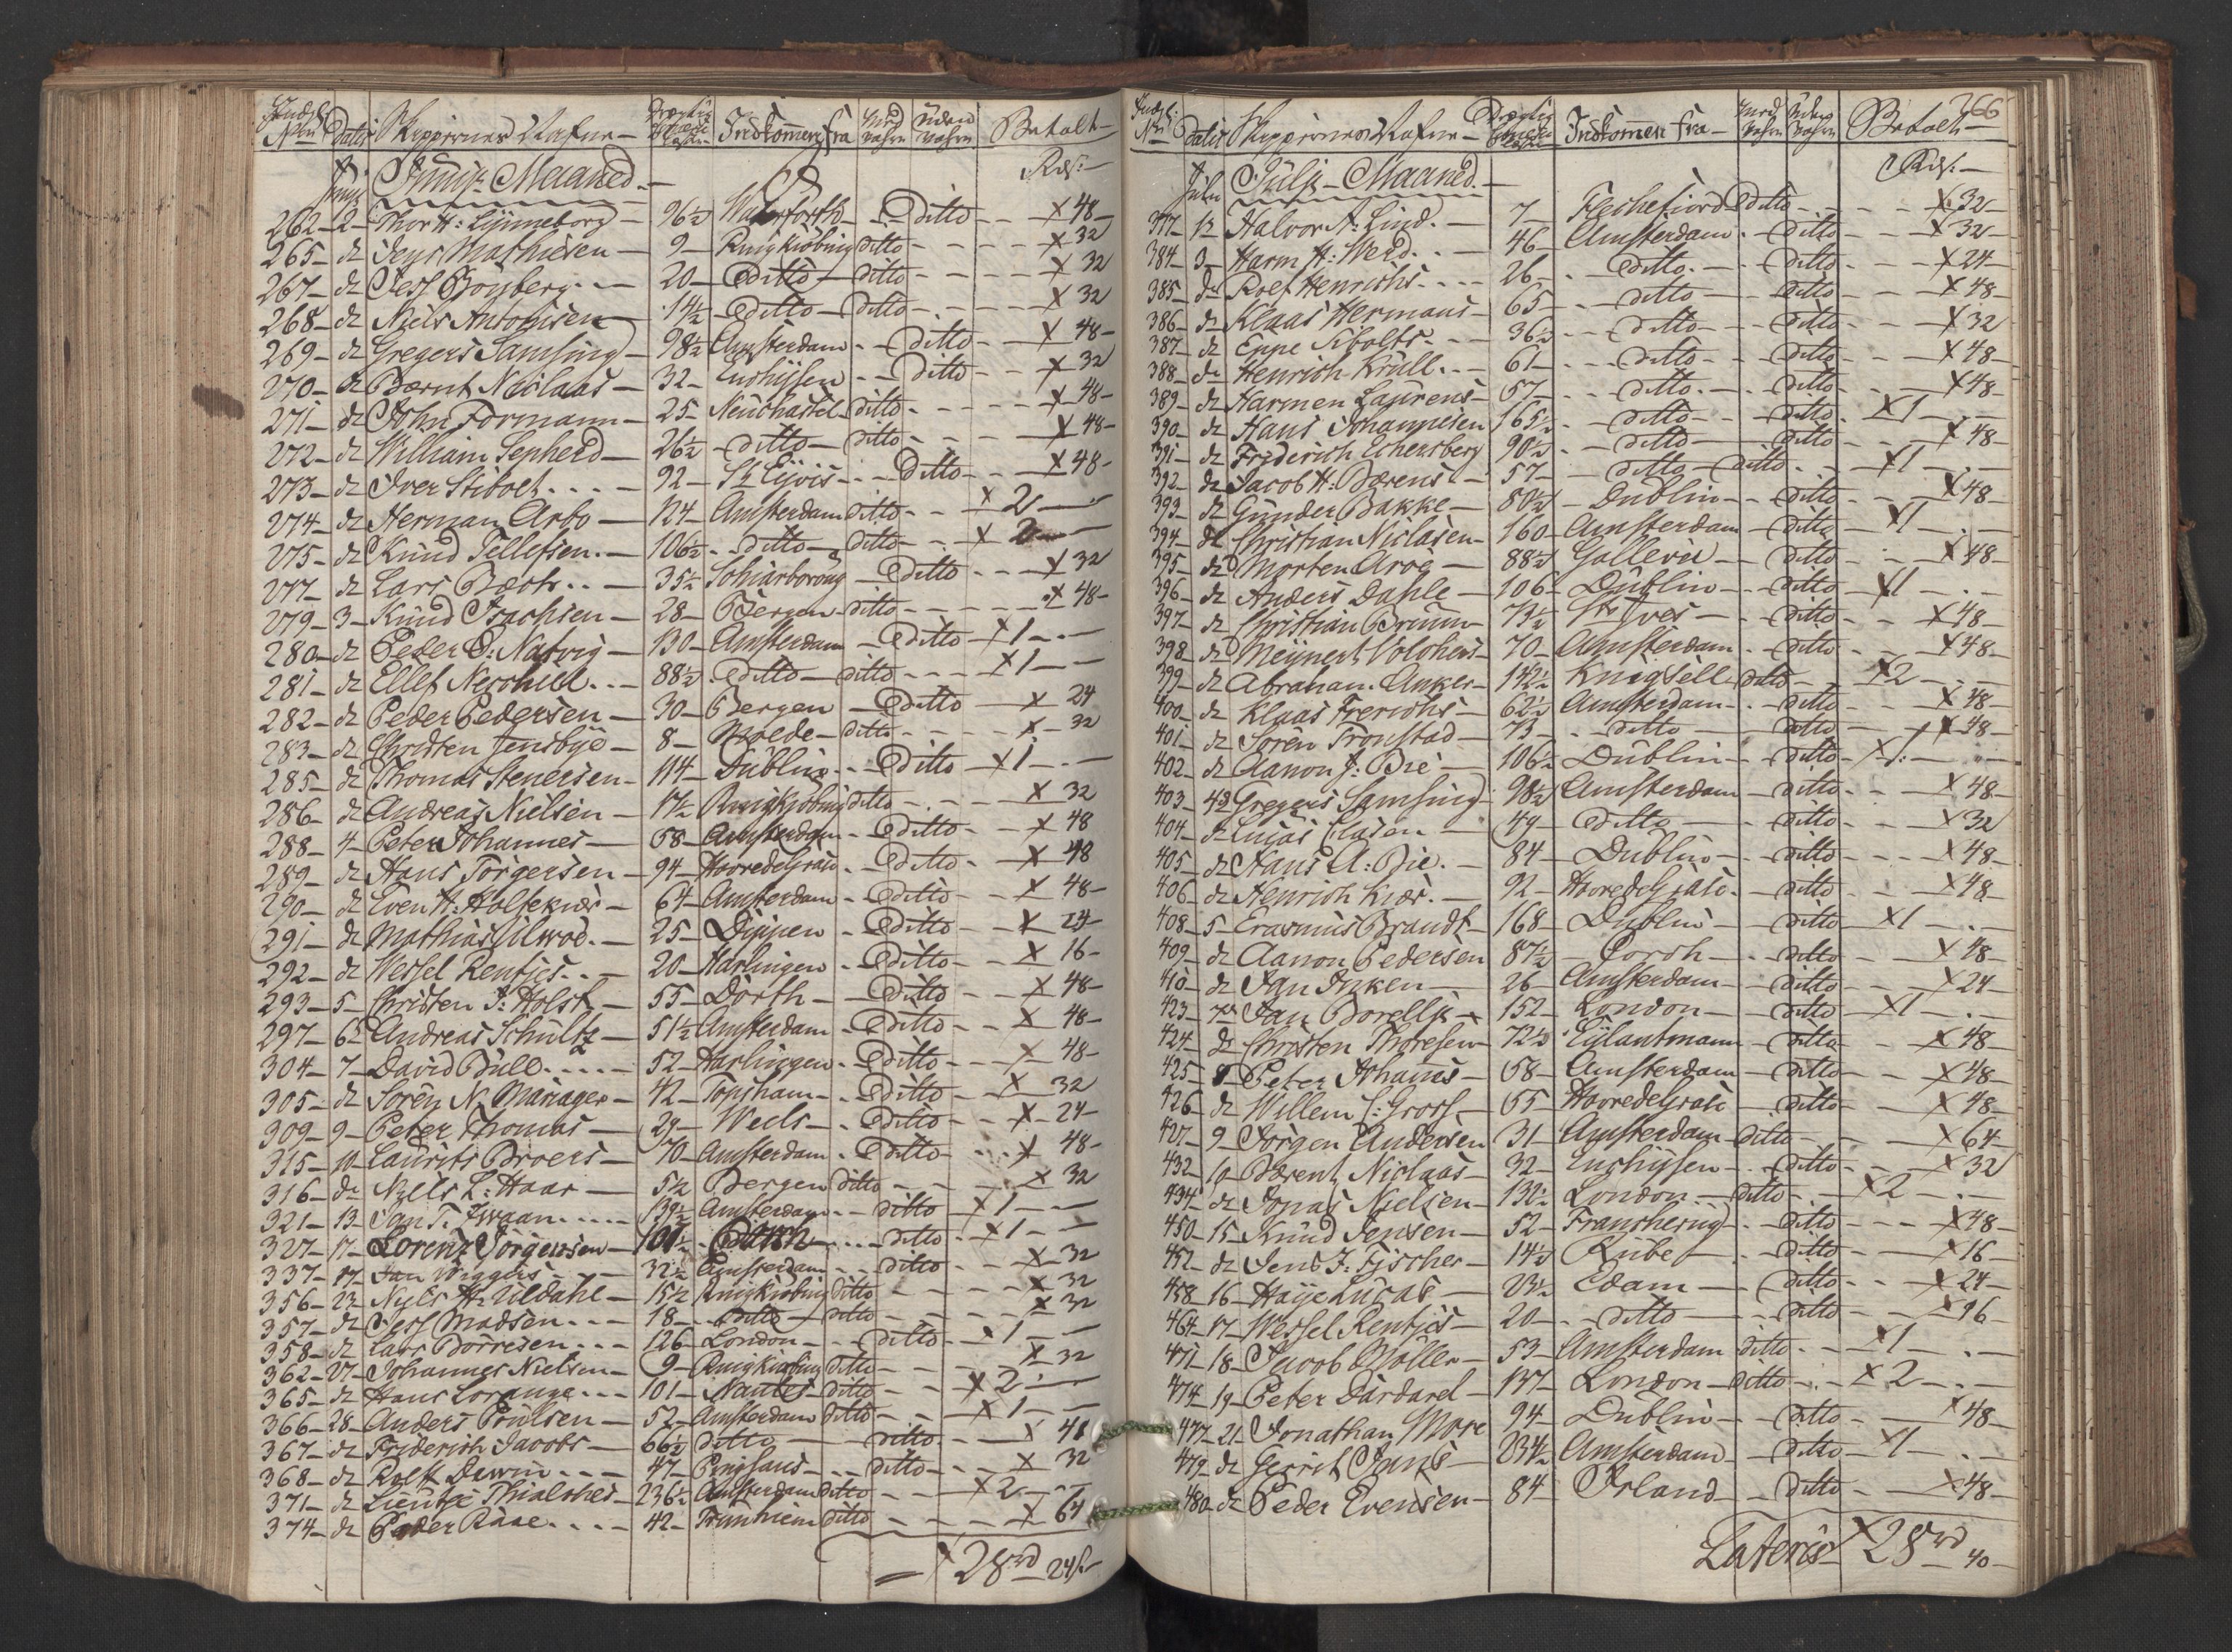 No Datis Skippernes Nafne Drægtig Indkommen fra Med Vahre Uden Vahre Betalt
Junij Maaned. Rd s:
262 2 Thor H: Lÿnneborg 96½ Waterforth Ditto X 48
265 d Jens Mathiesen 9 Ringkiøbing ditto X 32
267 d Jess Bönberg 20 Ditto ditto X 32
268 d Niels Antonisen 14½ Ditto Ditto X 32
269 d Gregers Samsing 98½ Amsterdam ditto X 48
270 d Bærnt Niclaas 32 Enchissen Ditto X 32
271 d John Formann 25 Neuchastel Ditto X 48
272 d William Sepherd 26½ ditto ditto X 48
273 d Iver Stibolt 92 St. Eÿvis Ditto X 48
274 d Herman Arbo 124 Amsterdam ditto X 2
275 d Knud Tellefsen 106½ ditto ditto X 2
277 d Lars Bæch 35½ Schiarboroug Ditto X 32
279 3 Knud Isachsen 28 Bergen ditto X 48
280 d Peter D: Natvig 130 Amsterdam Ditto X 1
281 d Ellef Necchiel 88½ Ditto ditto X 1
282 d Peder Pedersen 30 Bergen Ditto X 24
283 d Christen Jensbÿe 8 Molde ditto X 32
285 d Thomas Stenersen 114 Dublin Ditto X 1
286 d Andreas Nielsen 17½ Ringkiøbing ditto X 32
288 4 Peter Johannes 68 Amsterdam Ditto X 48
289 d Hans Torgersen 94 Havredegrase Ditto X 48
290 d Even H: Holtekiær 64 Amsterdam Ditto X 48
291 d Mathias Silwod 25 Dippen Ditto X 24
292 d Wessel Rentjes 20 Harlingen Ditto X 16
293 5 Christen J: Holst 55 Dorth Ditto X 48
297 6 Andreas Schultz 51½ Amsterdam Ditto X 48
304 7 David Bull 52 Harlingen Ditto X 48
305 d Sören N. Mariager 42 Topsham Ditto X 32
309 9 Peter Thomas 29 Weels Ditto X 24
315 10 Laurits Broers 70 Amsterdam Ditto X 48
316 d Niels L: Haar 5½ Bergen Ditto X 32
321 13 Jan T. Zwaan 139½ Amsterdam ditto X 1
327 17 Lorenz Jörgensen 101½ ditto X 1
337 17 Jan Wiggers 32½ Amsterdam ditto X 32
356 23 Niels H: Uldahl 15½ Ringkiøbing ditto X 32
357 d Jess Madsen 18 ditto ditto X 32
358 d Lars Borresen 126 London ditto X 1
362 27 Johannes Nielsen 9 Ringkiøbing ditto X 32
365 d Hans Lorange 101 Nantes ditto X 2
366 28 Anders Poulsen 52 Amsterdam Ditto X 1
367 d Friderich Jacobs 66½ ditto ditto X 48
368 d Rolff Dewin 47 ditto X 32
371 d Thialches 236½ Amsterdam Ditto X 2
374 d Peder Raae 42 Trunhiem ditto X 64
X 28 rd 24 s
366
No Datis Skippernes Nafne Drægtig Indkommen fra Med Vahre Uden Vahre Betalt
Julij Maaned. Rd s:
377 12 Halvor A: Lind. 7 Flechefiord ditto X 32
384 3 Harm H: Werd 46 Amsterdam Ditto X 32
385 d Roef Henrichs 26 Ditto Ditto X 24
386 d Klaas Hermans 65 ditto Ditto X 48
387 d Eppe Sibolts 36½ ditto Ditto X 32
388 d Henrich Krull 61 ditto Ditto X 48
389 d Harmen Laurens 67 ditto Ditto X 48
390 d Hans Johannesen 165½ ditto ditto X 1
391 d Friderich Echersberg 90½ ditto ditto X 48
392 d Jacob H: Barens 57 ditto ditto X 1
393 d Gunder Bakke 80½ Dublin ditto X 48
394 d Christian Niclasen 160 Amsterdam ditto X 1
395 d Morten Aroe 88½ Gallevei ditto X 48
396 d Anders Dahle 106 Dublin ditto X 1
397 d Christian Bruun 73½ St Ives ditto X 48
398 d Meÿnert Volchers 70 Amsterdam ditto X 48
399 d Abraham Anker 142½ Kingsell ditto X 2
400 d Klaas Frerichs 62½ Amsterdam ditto X 48
401 d Soren Tronstad 73 ditto ditto X 48
402 d Aanon J: Bie 106½ Dublin ditto X 1
403 4 Gregers Samsing 98½ Amsterdam ditto X 48
404 d Lucas Clasen 49 ditto ditto X 32
405 d Hans A: Bie 84 Dublin ditto X 48
406 d Henrich Kiær 92 Havredegrase ditto X 48
408 5 Erasmus Brandt 168 Dublin ditto X 1
409 d Aanon Pedersen 87½ Corch ditto X 48
410 d Jan Inken 26 Amsterdam ditto X 24
423 7 Jan Borellÿs 152 London ditto X 1
424 d Christen Thoresen 72½ Eÿlantmann ditto X 48
425 8 Peter Johans 68 Amsterdam ditto X 48
426 d Willem C: Gross 65 Havredegrase ditto X 48
427 9 Jörgen Andersen 31 Amsterdam ditto X 64
432 10 Bærent Niclaas 32 Enchÿsen ditto X 32
434 d Jonas Nielsen 132½ London ditto X 2
450 15 Knud Jensen 52 Franshering ditto X 48
452 d Jens J: Fischer 14½ Ribe ditto X 16
458 16 Haÿe Lucas 23½ Edam ditto X 24
464 17 Wessel Rentjes 20 ditto ditto X 16
471 18 Jacob Möller 53 Amsterdam ditto X 1
474 19 Peter Dardarel 137 London ditto X 2
477 21 Jonathan More 94 Dublin ditto X 48
479 d Gerrit Jans 234½ Amsterdam ditto X 1
480 d Peder Evensen 84 Irland ditto X 48
Lateris X 28 rd 40